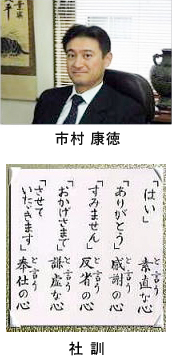 市村 康徳
「はい」と言う 素直な心
「ありがとう」と言う 感謝の心
「すみません」と言う 反省の心
「おかげさまで」と言う 謙虚な心
「させていただきます」と言う 奉仕の心
社 訓